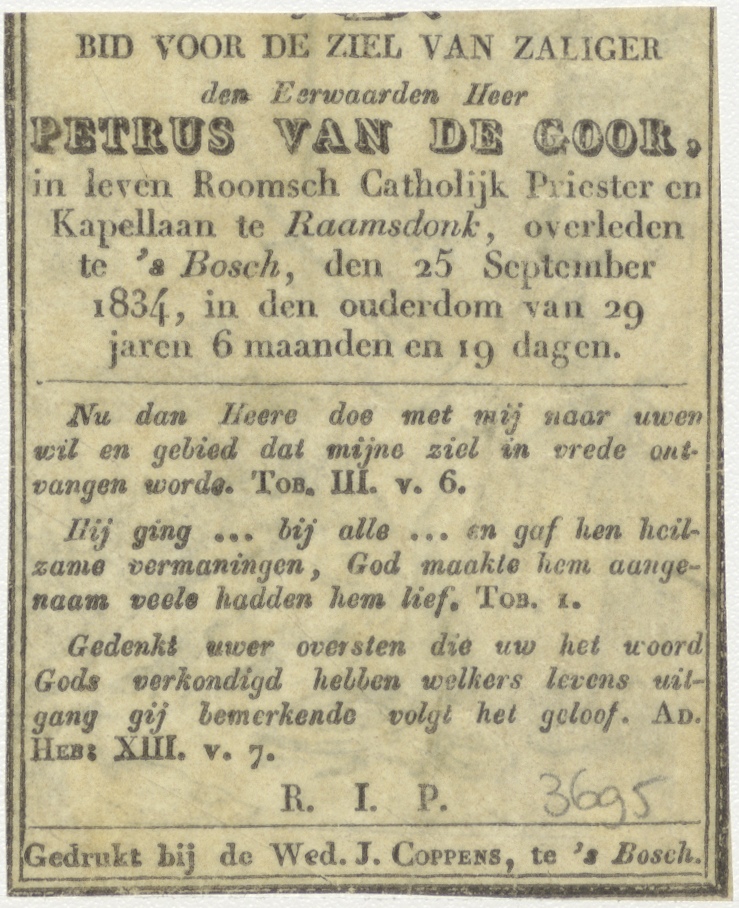 BID VOOR DE ZIEL VAN ZALIGER
den Eerwaarden Heer
PETRUS VAN DE GOOR,
in leven Roomsch Catholijk Priester en
Kapellaan te Raamsdonk, overleden
te 's Bosch, den 25 September
1834, in den ouderdom van 29
jaren 6 maanden en 19 dagen.
Nu dan Heere doe met mij naar uwen
wil en gebied dat mijne ziel in vrede ont-
vangen worde. TOB. III. v. 6.
Hij ging ... bij alle ... en gaf hen heil-
zame vermaningen, God maakte hem aange-
naam veele hadden hem lief. TOB. 1.
Gedenkt uwer oversten die uw het woord
Gods verkondigd hebben welkers levens uit-
gang gij bemerkende volgt het geloof. AD.
HEB: XIII. v. 7.
R. I. P.
3695
Gedrukt bij de Wed. J. COPPENS, te 's Bosch.